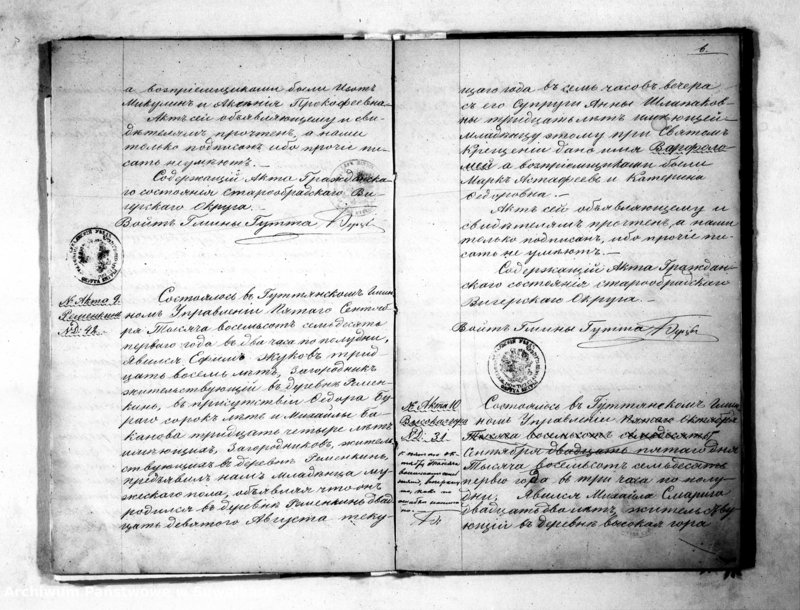 а воспріемщиками были Изотъ
Микулинъ и Аксинія Прокофеевна
Актъ сей объявляющему и сви-
дѣтелямъ прочтенъ, а нами
только подписанъ ибо прочіе пи-
сать не умѣютъ. —
Содержащій Акта Граждан-
скаго состоянія Старообрадскаго Ви-
герскаго Округа
Войтъ Гмины Гутта
№ Акта 9.
№ Д: 42.
Состоялось въ Гуттянскомъ Гмин-
номъ Управленіи Пятаго Сентяб-
ря Тысяча восемьсотъ семьдесятъ
перваго года въ два часа по полудни,
явился Ефимъ Жуковъ трид-
цать восемь лѣтъ, Загородникъ
жительствующій въ деревнѣ Рѣмен-
кинѣ, въ присутствіи Ѳедора Бу-
раго сорокъ лѣтъ и Михайлы Ба-
канова тридцать четыре лѣтъ
имѣющихъ, Загородниковъ, житель-
ствующихъ въ деревнѣ Рѣменкинѣ,
предъявилъ намъ младенца му-
жескаго пола, объявляя что онъ
родился въ деревнѣ Рѣменкинѣ двад-
цать девятаго Августа теку-
6.
щаго года въ семь часовъ вечера
съ его Супруги Анны Шлапаков-
ны тридцать лѣтъ имѣющей
младенцу этому при Святомъ
крещеніи дано имя Варфоло-
мей а воспріемщиками были
Маркъ Аспафеевъ и Катерина
Ѳедоровна. —
Актъ сей объявляющему и
свидѣтелямъ прочтенъ, а нами
только подписанъ, ибо прочіе пи-
сать не умѣютъ. —
Содержащій Акта Граждан-
скаго состоянія старообрадскаго
Вигерскаго Округа. —
Войтъ Гмины Гутта
№ Акта 10
Высокагора
№ Д: 31.
Состоялось въ Гуттянскомъ Гмин-
номъ Управленіи Пятаго Октября
Тысяча восемьсотъ семьдесятъ
Сентября двадцать пятаго дня
Тысяча восемьсотъ семьдесятъ
перваго года въ три часа по полу-
дни; Явился Михайла Смарыго
двадцать два лѣтъ, жительству-
ющій въ деревнѣ высокая гора
Archiwum Państwowe w Suwałkach